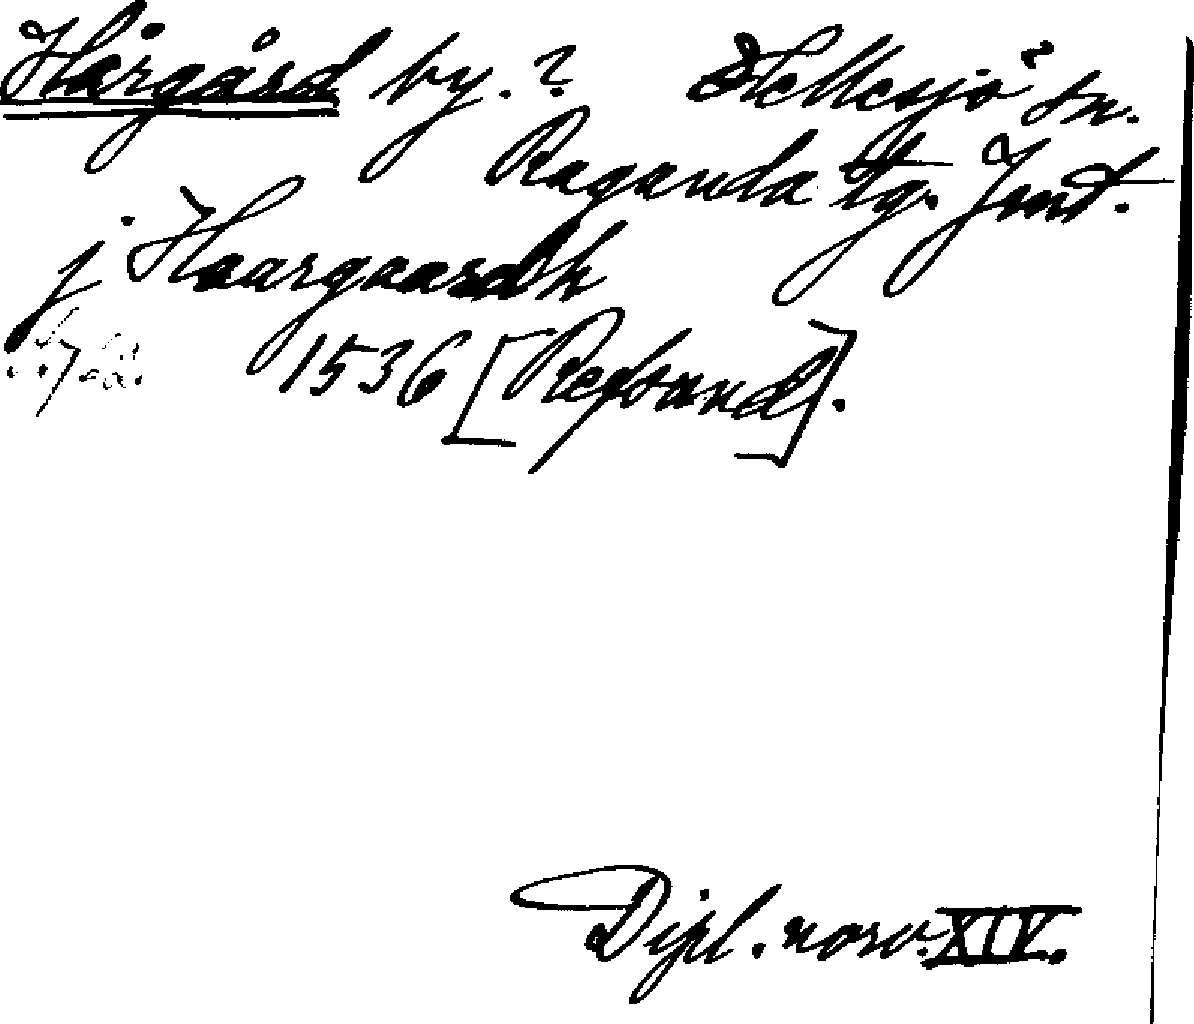 Hårgård by. ? Hellesjö sn.
Ragunda tg. Jmt.
j Haargaardh
1536 [Refsund].
Dipl. norv. XIV.